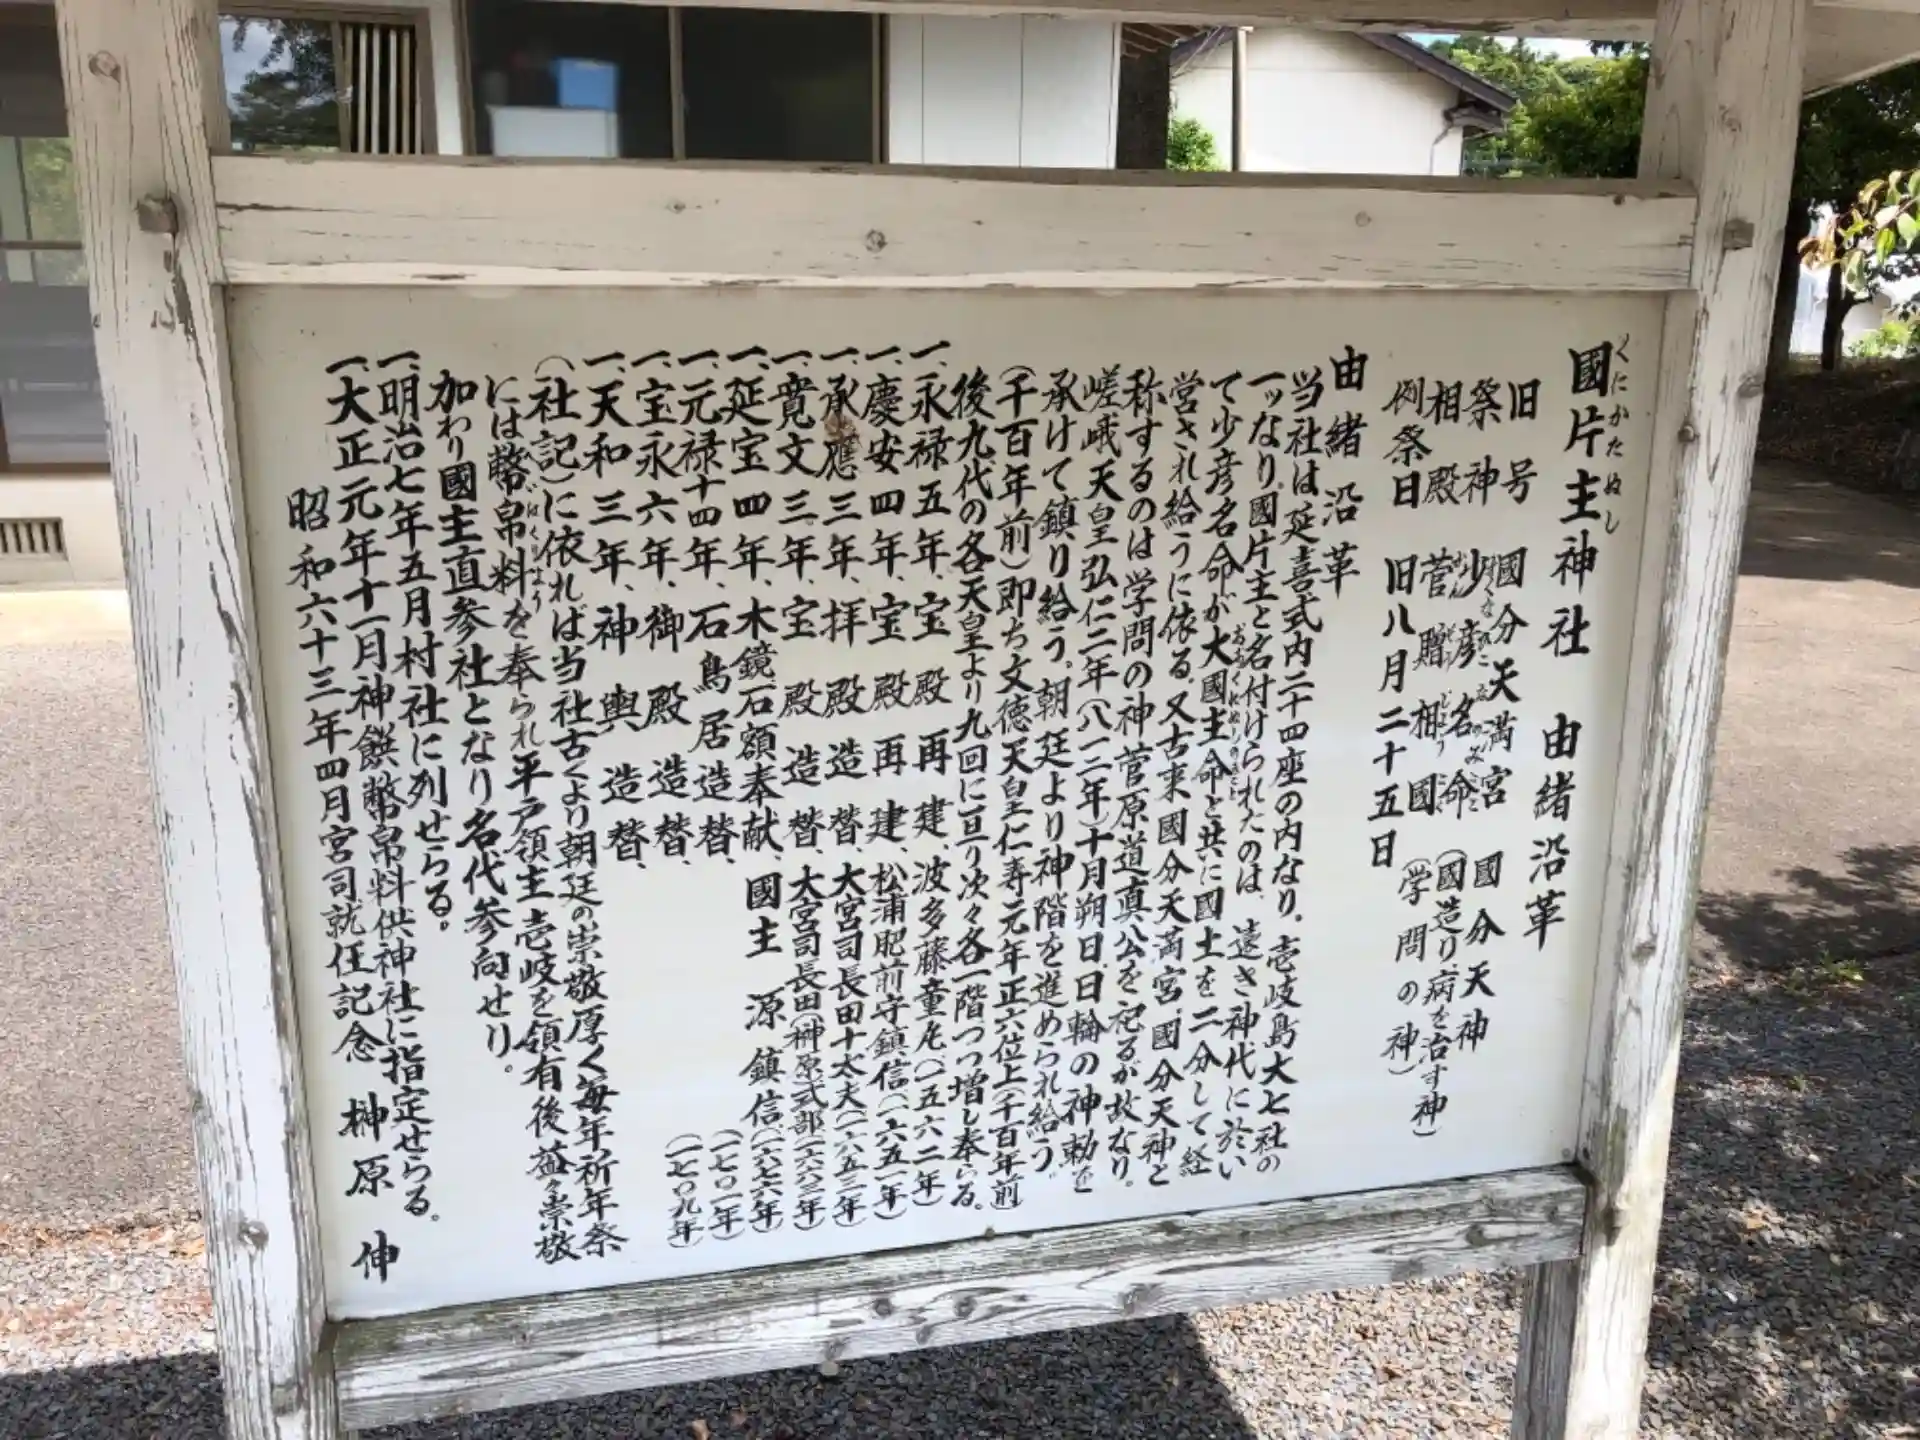 國片主神社　由緒沿革
くにかたぬし
旧号　國分天満宮　國分天神
祭神　少彦名命　（國造り、病を治す神）
相殿　菅贈相國　（学問の神）
例祭日　旧八月二十五日
由緒沿革
当社は延喜式内二十四座の内なり。壱岐島大七社の
一ッなり。國片主と名付けられたのは、遠き神代に於い
て少彦名命が大國主命と共に國土を二分して経
営され給うに依る。又古来國分天満宮、國分天神と
称するのは学問の神菅原道真公を祀るが故なり。
嵯峨天皇弘仁二年（八一二年）十月朔日、日輪の神勅を
承けて鎮り給う。朝廷より神階を進められ給う。
（千百年前）即ち文徳天皇仁寿元年正六位上（千百年前）
後九代の各天皇より九回に亘り次々各一階づつ増し奉らる。
一、永禄五年、宝殿再建、波多藤童丸（一五六二年）
一、慶安四年、宝殿再建、松浦肥前守鎮信（一六五一年）
一、承應三年、拝殿造替、大宮司長田十太夫（一六五三年）
一、寛文三年、宝殿造替、大宮司長田（榊原）式部（一六六三年）
一、延宝四年、木鏡、石額奉献、國主　源鎮信、（一六七六年）
一、元禄十四年、石鳥居造替、（一七〇一年）
一、宝永六年、御殿造替、（一七〇九年）
一、天和三年、神輿造替、
（社記）に依れば当社古くより朝廷の崇敬厚く毎年祈年祭
には幣帛料を奉られ平戸領主壱岐を領有後益々崇敬
加わり國主直参社となり名代参向せり。
一、明治七年五月村社に列せらる。
一、大正元年十一月神饌幣帛料供神社に指定せらる。
昭和六十三年四月宮司就任記念　榊原　伸